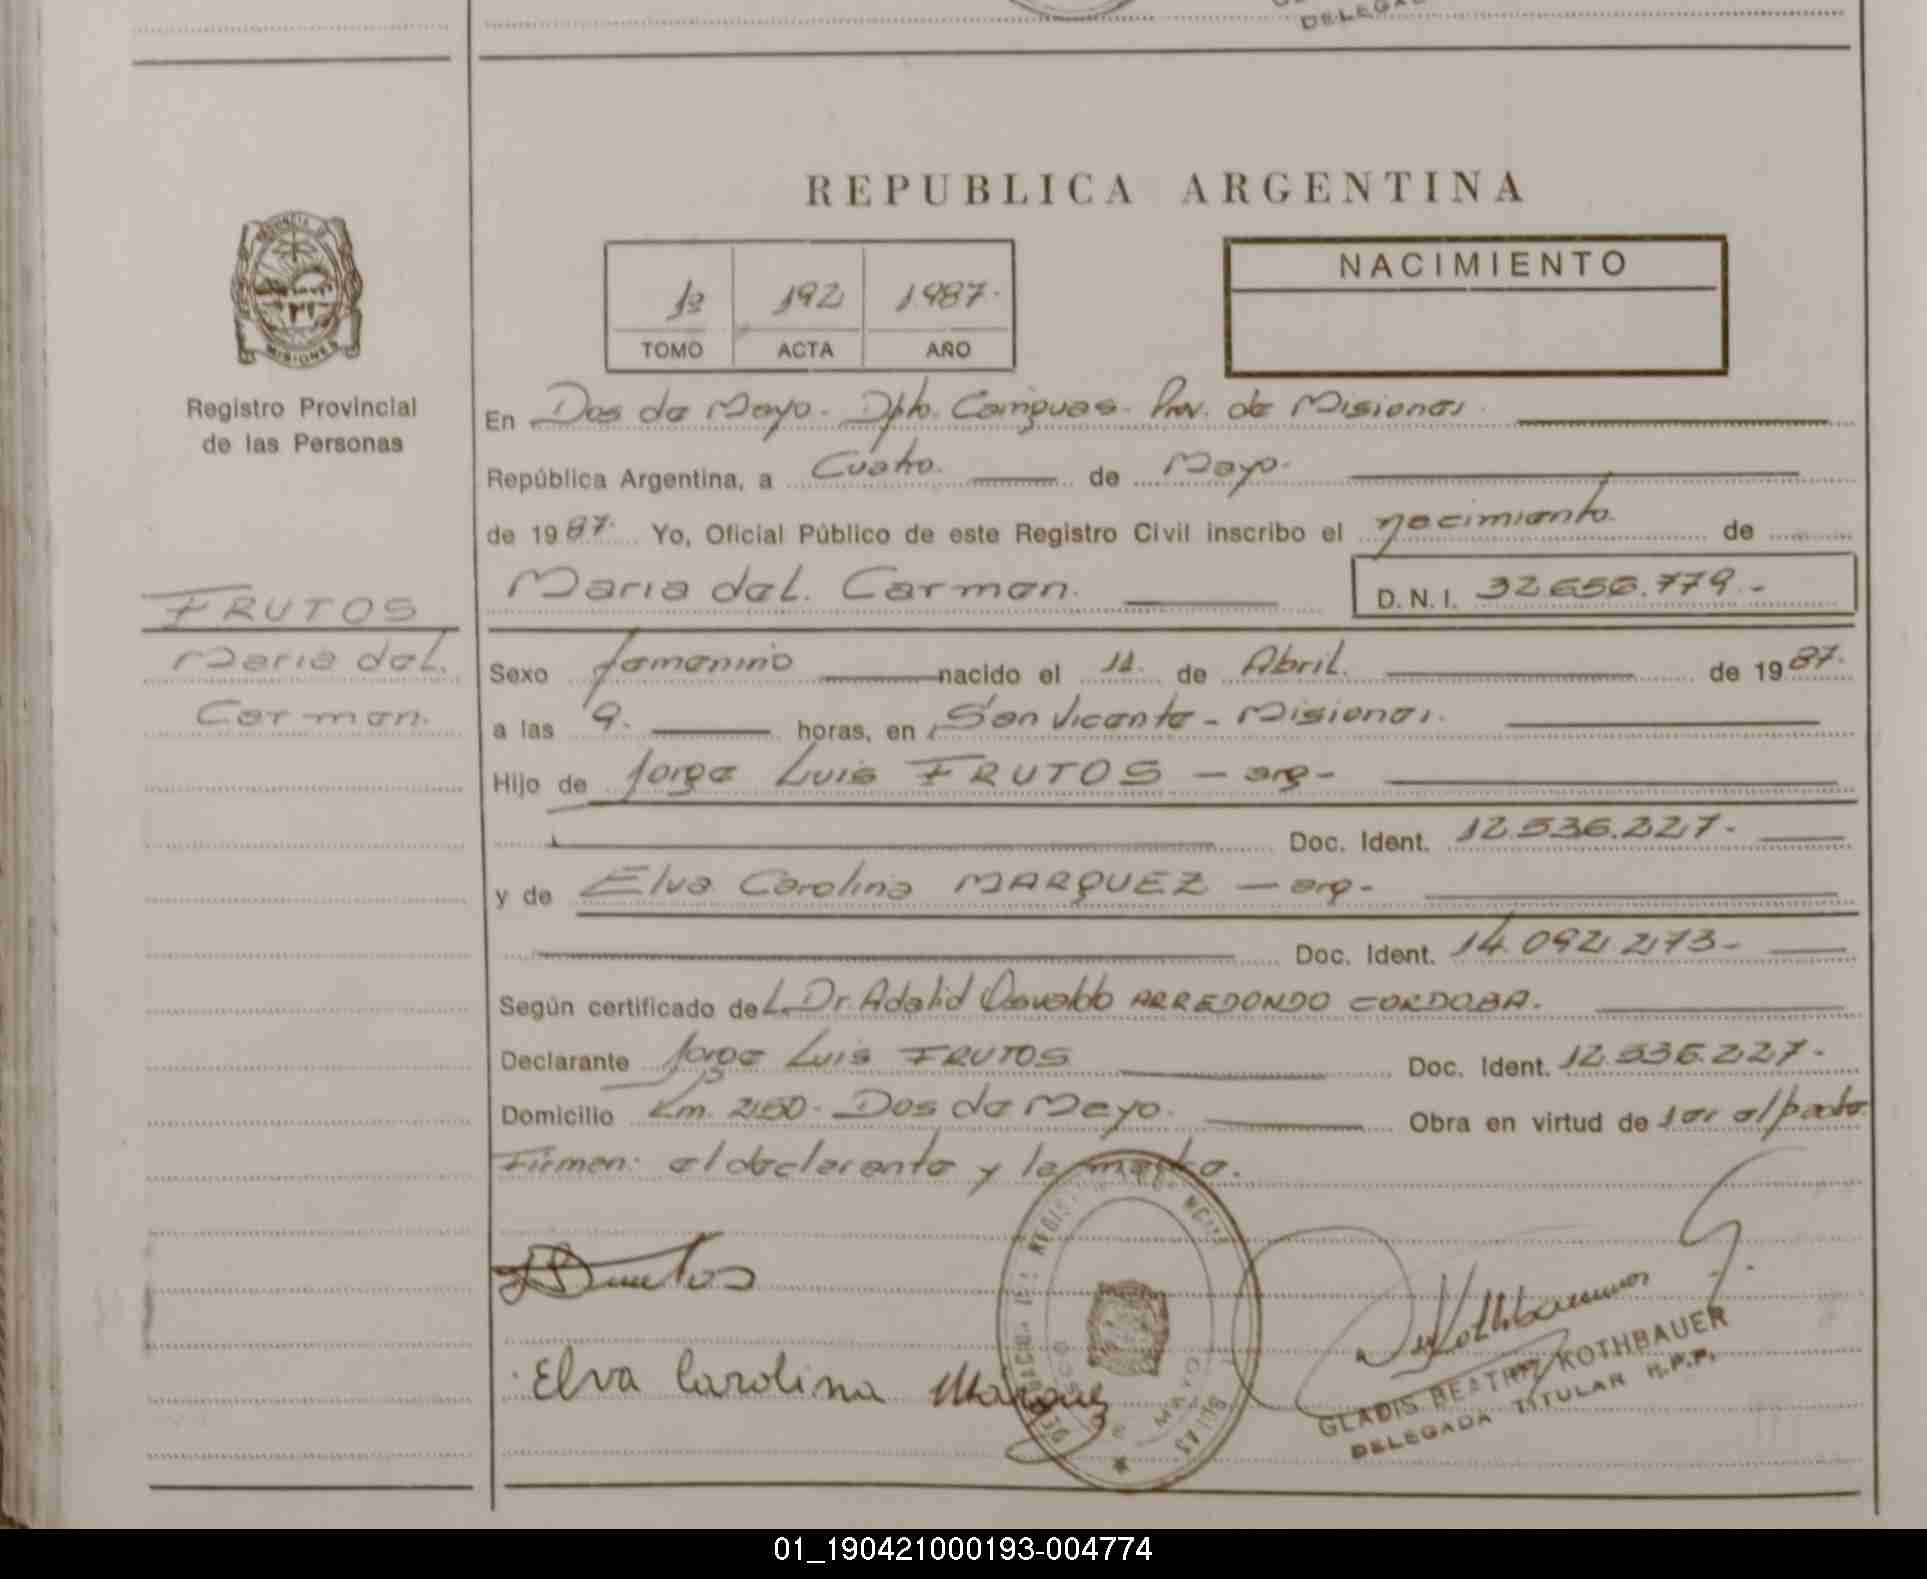 DELEGA
REPUBLICA ARGENTINA
PROVINCIA DE
MISIONES
Registro Provincial
de las Personas
1º 192 1987.
TOMO ACTA AÑO
NACIMIENTO
En Dos de Mayo. Dpto. Cainguas. Prov. de Misiones.
República Argentina, a Cuatro. de Mayo.
de 1987. Yo, Oficial Público de este Registro Civil inscribo el nacimiento. de
FRUTOS
Maria del.
Carmen.
Maria del. Carmen. D.N.I. 32.656.779.-
Sexo femenino nacido el 14. de Abril. de 1987.
a las 9. horas, en San Vicente - Misiones.
Hijo de Jorge Luis FRUTOS - arg-
Doc. Ident. 12.536.227.
y de Elva Carolina MARQUEZ - arg-
Doc. Ident. 14.092.273-
Según certificado de L. Dr. Adalid Osvaldo ARREDONDO CORDOBA.
Declarante Jorge Luis FRUTOS Doc. Ident. 12.536.227.
Domicilio Km. 250. Dos de Mayo. Obra en virtud de
Firman: el declarante y la madre.
Elva Carolina Marquez
DOS DE MAYO
GLADIS BEATRIZ KOTHBAUER
DELEGADA TITULAR R.P.P.
01_190421000193-004774